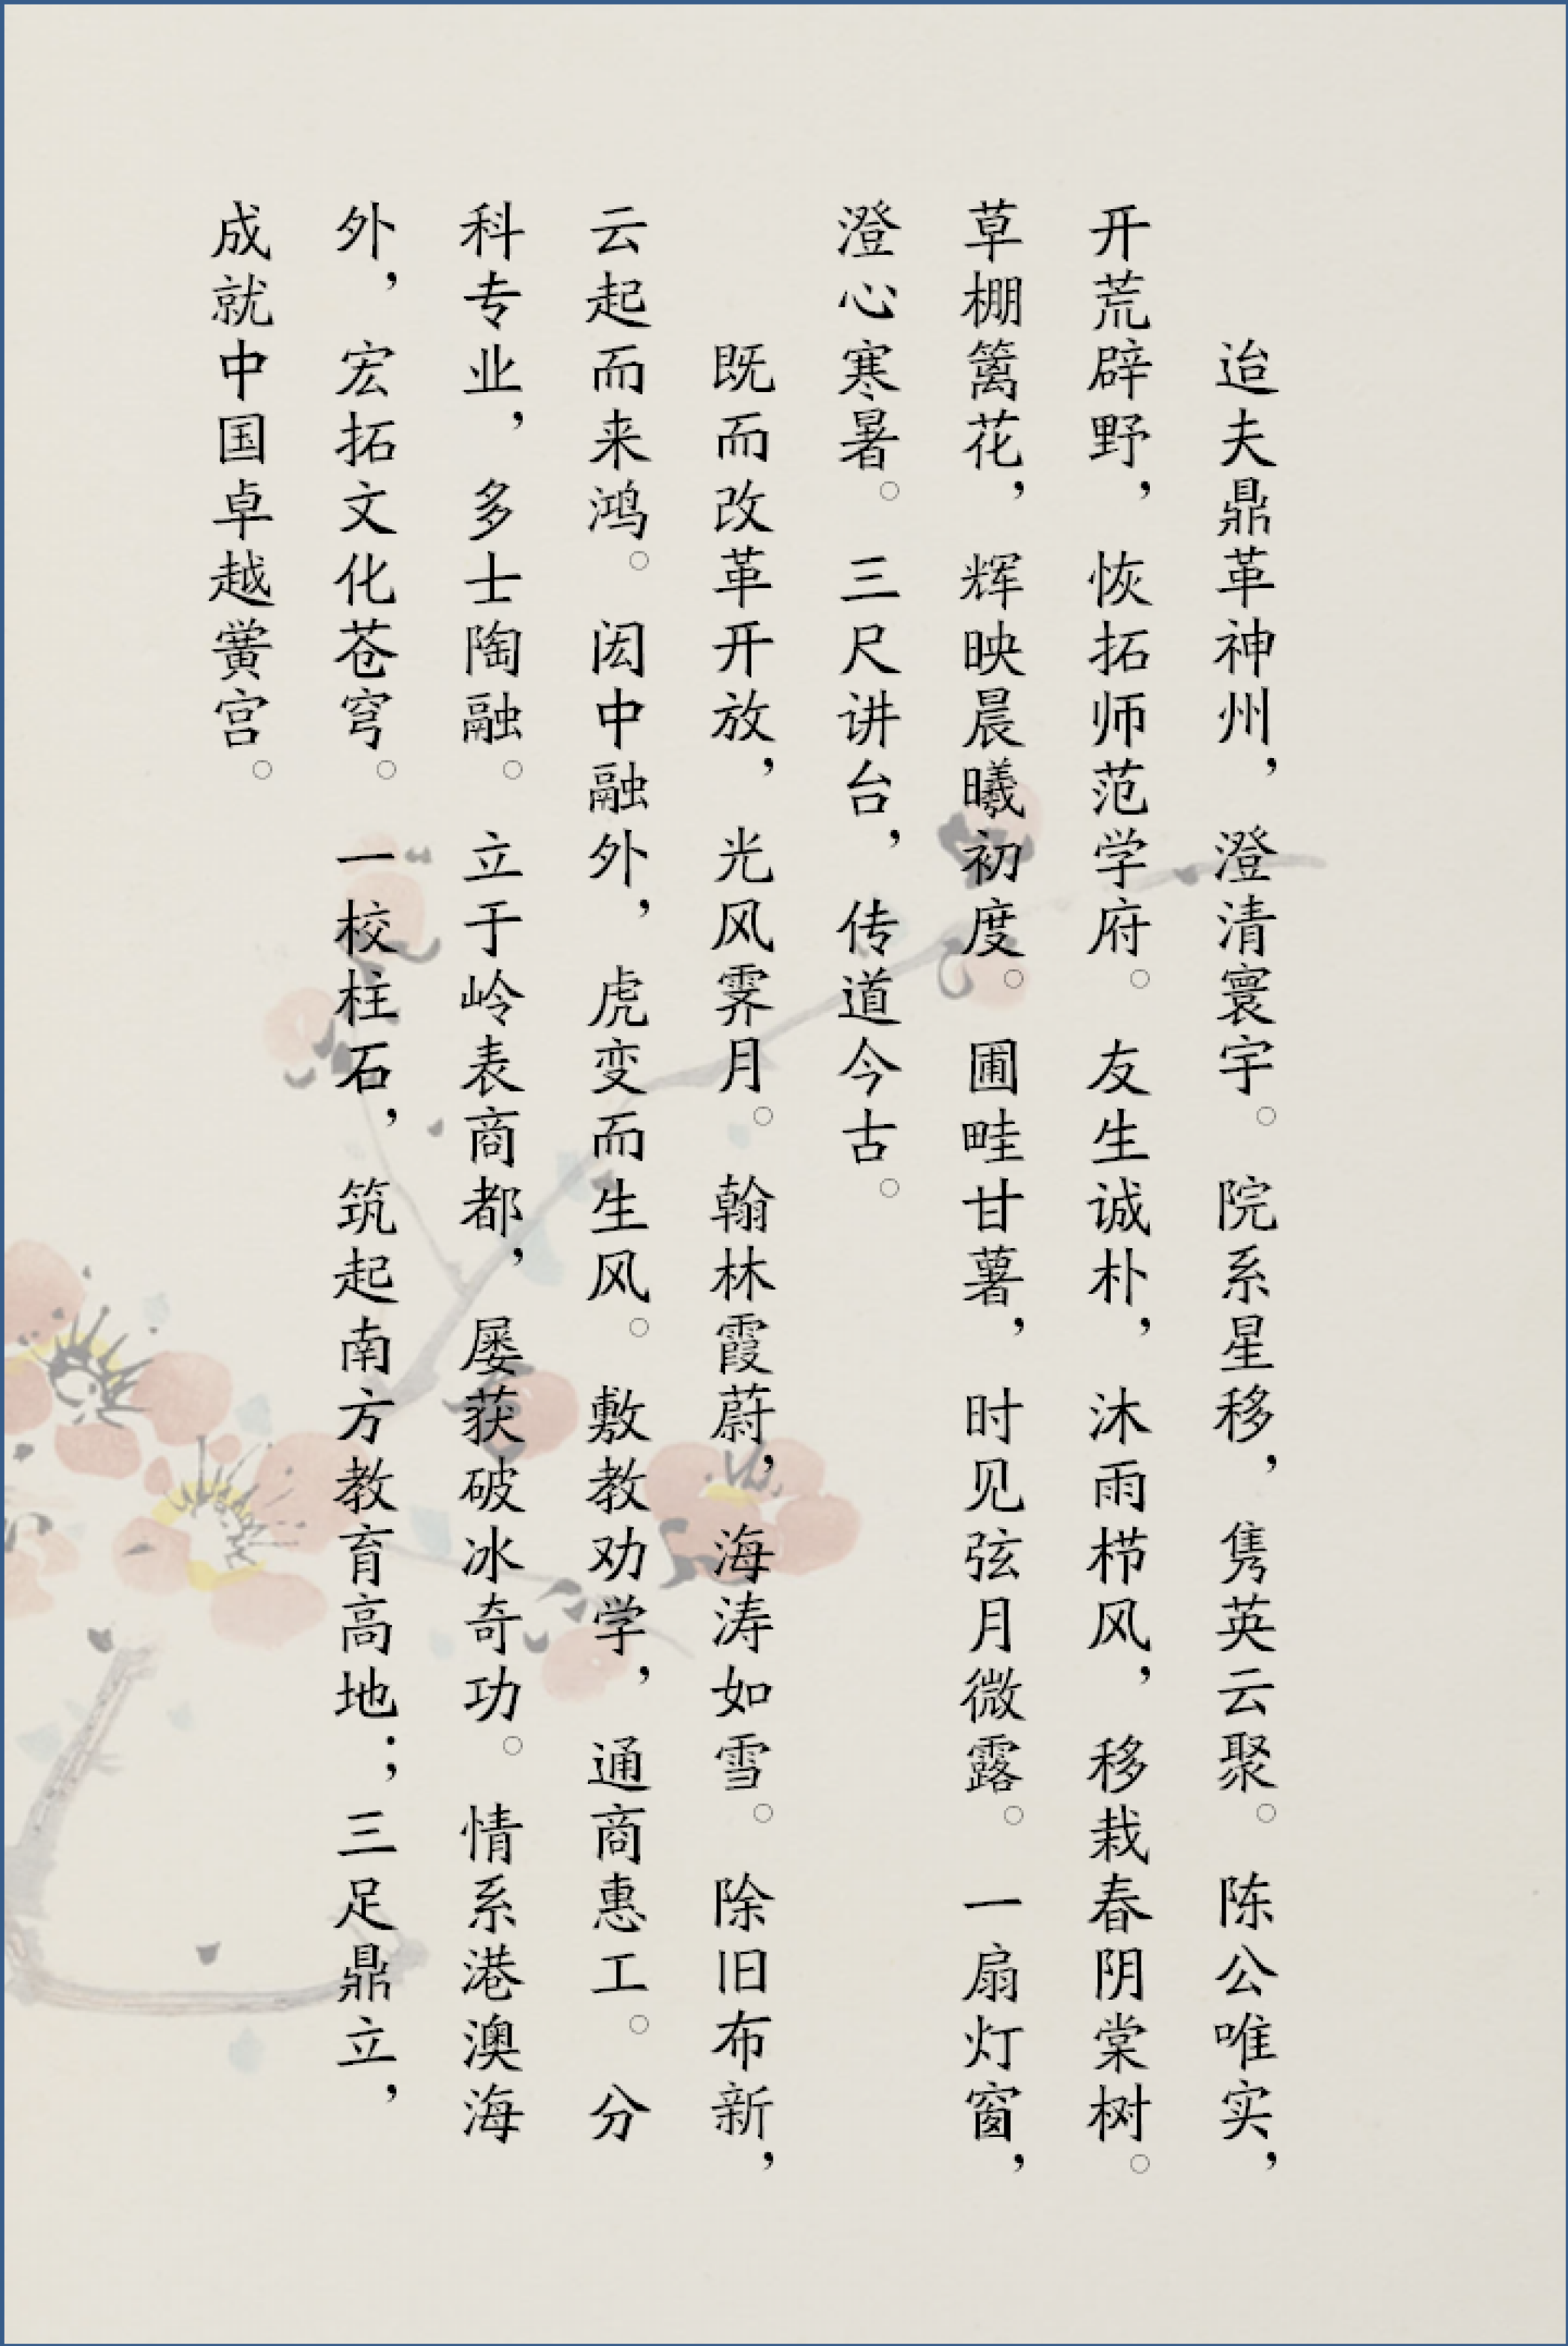 迨夫鼎革神州，澄清寰宇。院系星移，隽英云聚。陈公唯实，
开荒辟野，恢拓师范学府。友生诚朴，沐雨栉风，移栽春阴棠树。
草棚篱花，辉映晨曦初度。圃畦甘薯，时见弦月微露。一扇灯窗，
澄心寒暑。三尺讲台，传道今古。
既而改革开放，光风霁月。翰林霞蔚，海涛如雪。除旧布新，
云起而来鸿。闳中融外，虎变而生风。敷教劝学，通商惠工。分
科专业，多士陶融。立于岭表商都，屡获破冰奇功。情系港澳海
外，宏拓文化苍穹。一校柱石，筑起南方教育高地；三足鼎立，
成就中国卓越黉宫。